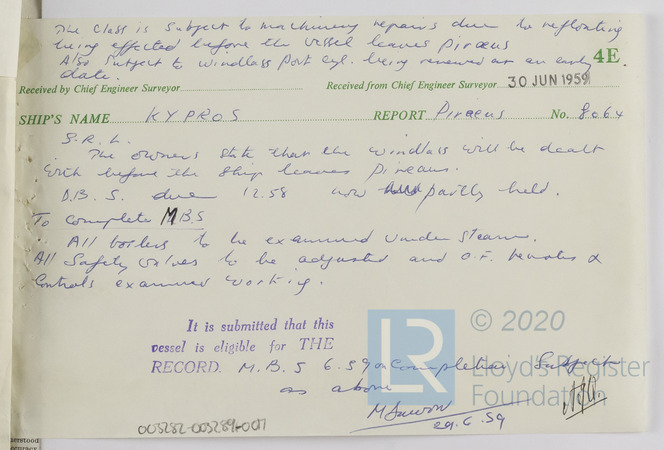 The Class is Subject to machinery repairs due to refloating
being effected before the vessel leaves Piraeus
Also Subject to windlass Port cyl. being renewed at an early
date.
4E
Received by Chief Engineer Surveyor
Received from Chief Engineer Surveyor 30 JUN 1959
SHIP'S NAME KYPROS REPORT Piraeus No. 8064
S.R.L.
The owners state that the windlass will be dealt
with before the ship leaves Piraeus.
D.B.S. due 12.58 now partly held.
To complete M.B.S
All boilers to be examined under steam.
All Safety valves to be adjusted and O.F. remotes &
Controls examined working.
It is submitted that this
vessel is eligible for THE
RECORD. M.B.S 6.59 on Completion Subject
as above
29.6.59
LR
© 2020
Lloyd's Register
Foundation
003282-003289-0017